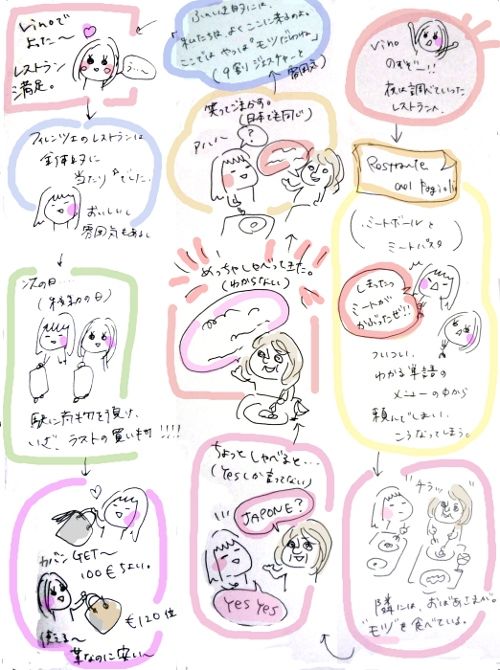 vino
のむぞー!!
夜は調べていった
レストランへ
Ristorante
dei Fagioli
(ミートボールと
ミートパスタ)
しまったっ
ミートが
かぶったぜ!!
ついつい、
わかる単語の
メニューの中から
頼んでしまい、
こうなってしまう。
チラッ
隣には、おばあさまが。
"モツ"を食べている。
ちょっとしゃべると…
(Yesしか言ってない)
JAPONE?
Yes Yes
めっちゃしゃべってきた。
(わからない)
笑ってごまかす。
(日本でも同じ)
?
アハハ〜
ふんいき的には、
「私たちは、よくここに来るのよ。
ここではやっぱ「モツ」だわね」
(9割ジェスチャーと
雰囲気)
vinoで
よった〜
レストラン
満足。
うぃ〜
フィレンツェのレストランは
全体的に
当たりでした。
おいしいし
雰囲気もあるし
次の日…
(移動の日)
駅に荷物を預け、
いざ、ラストの買いもの!!!!
カバンGET〜
100€ちょい。
€120位
革なのに安い〜